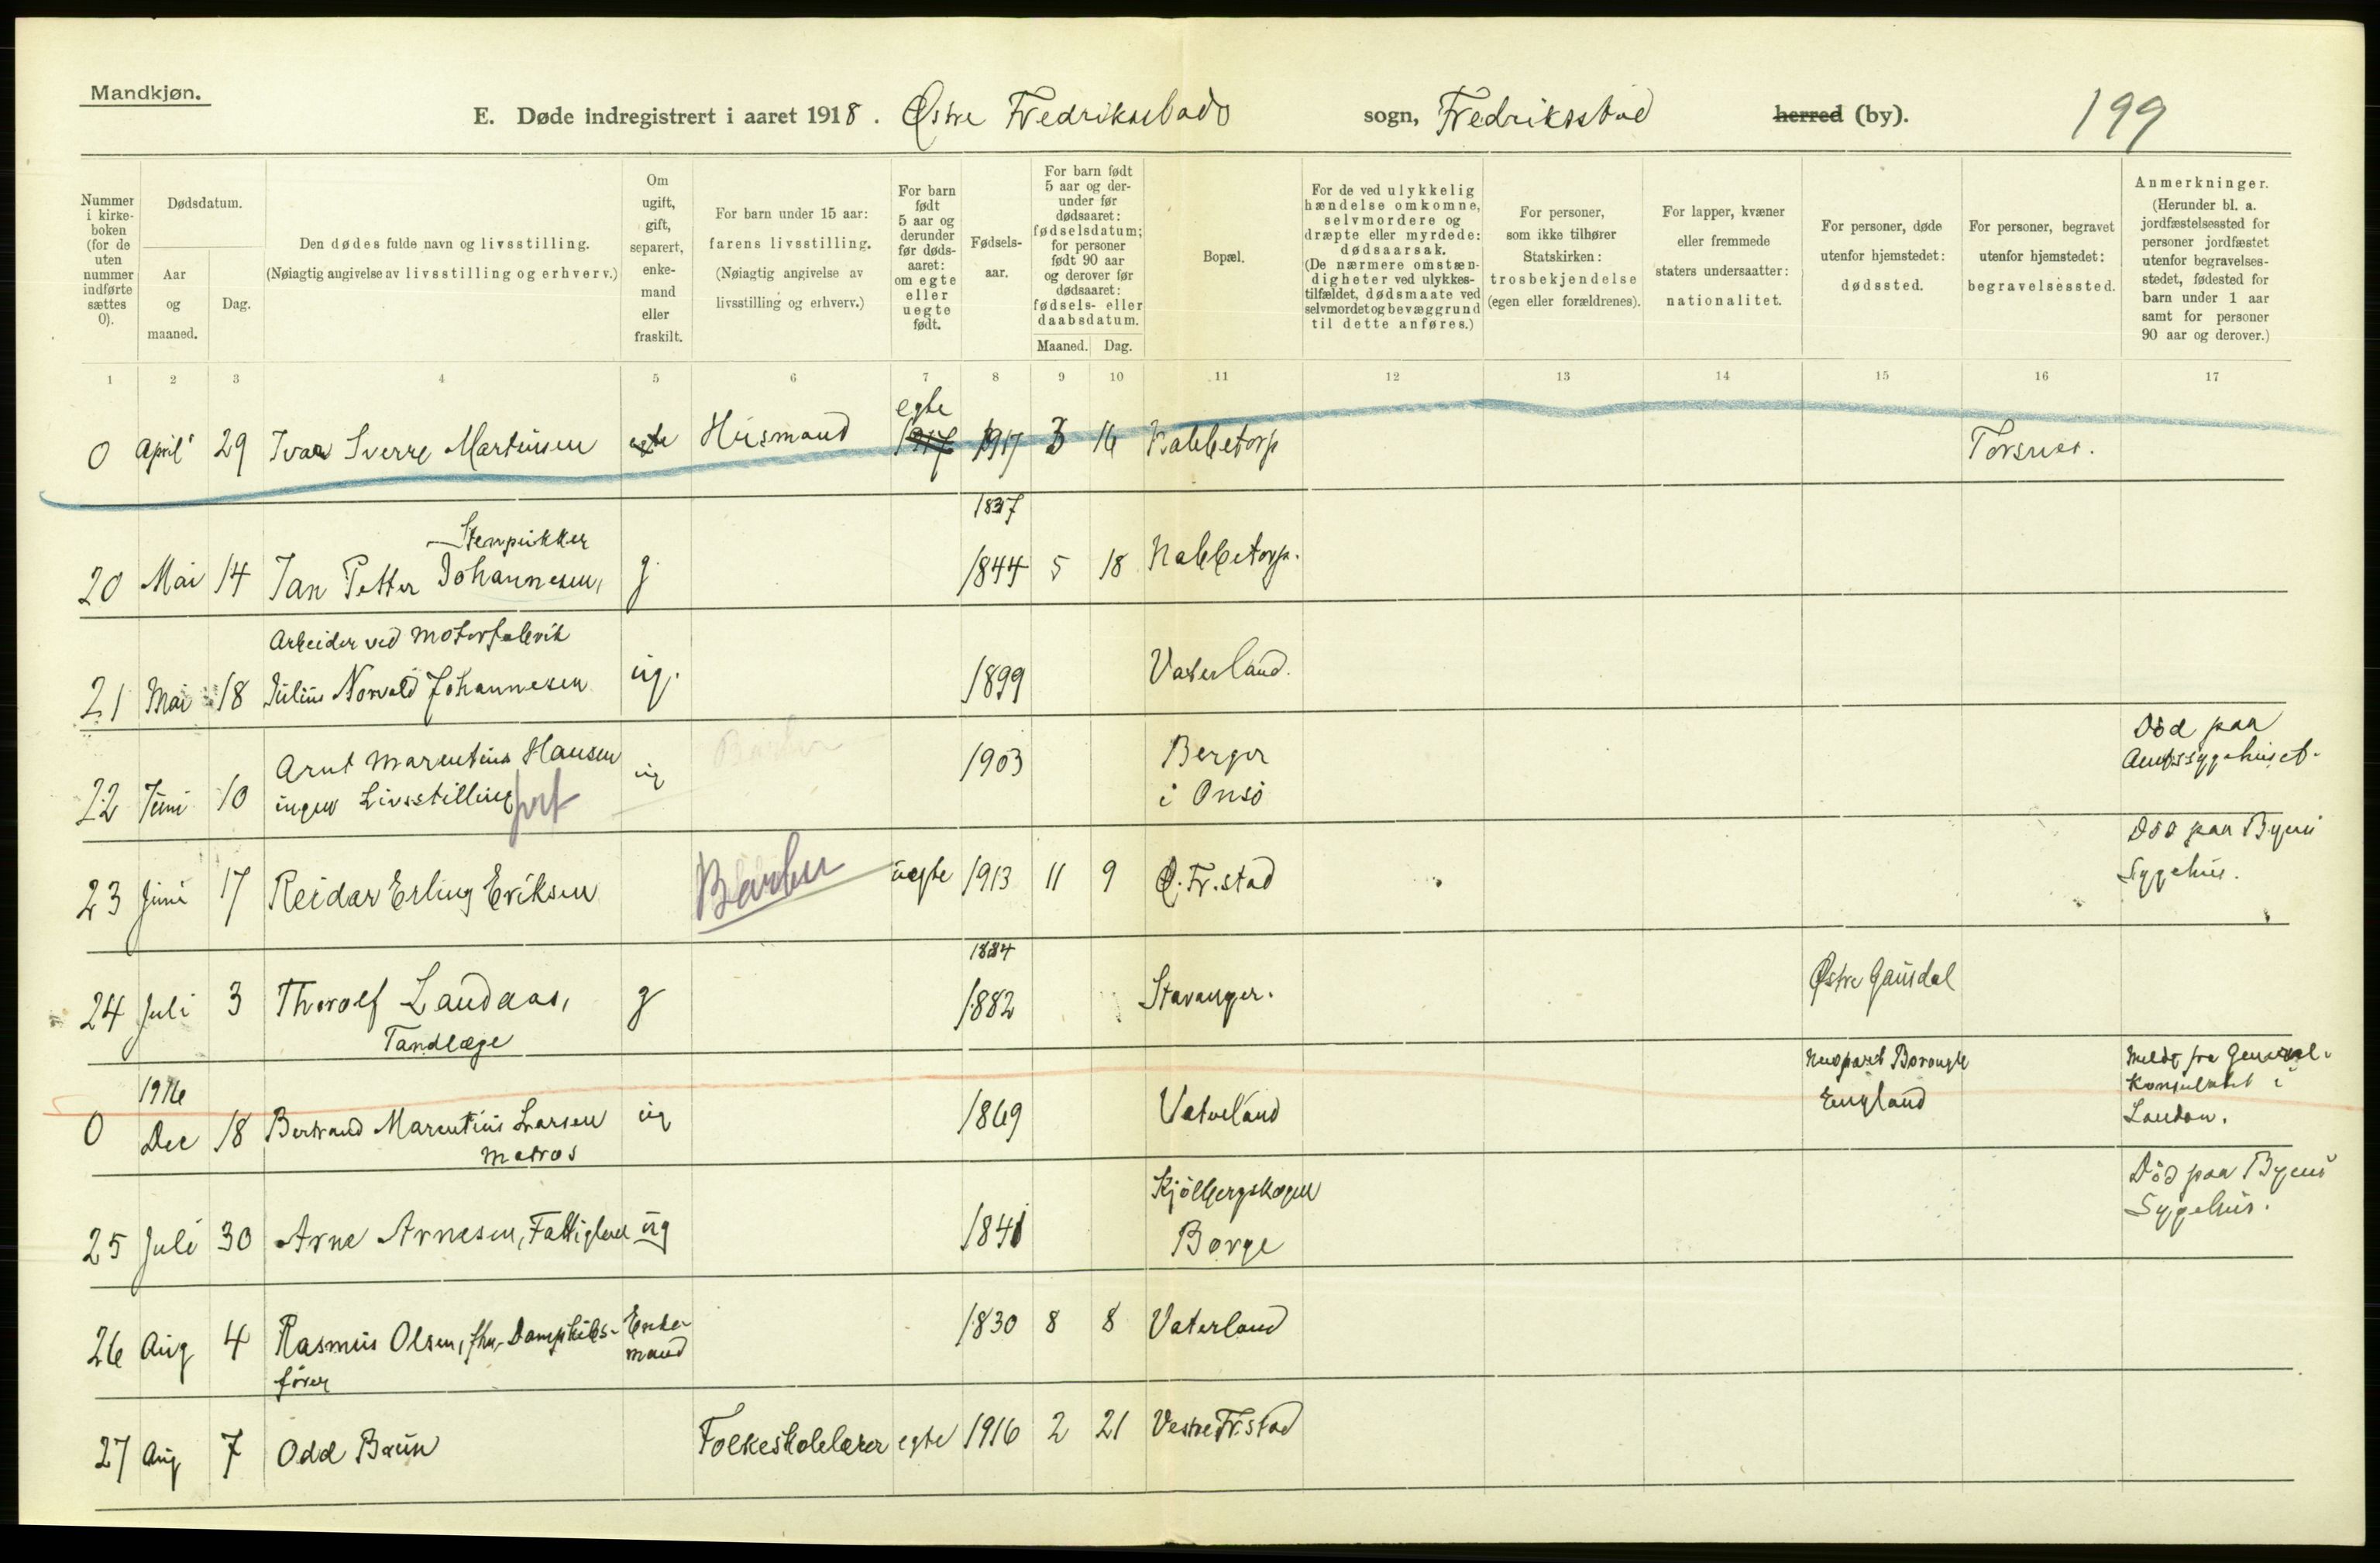 Mandkjøn.
E. Døde indregistrert i aaret 1918. Østre Fredriksstads sogn, Fredriksstad herred (by). 199
Nummer i kirkeboken (for de uten nummer indførte sættes 0).
Dødsdatum.
Aar og maaned.
Dag.
Den dødes fulde navn og livsstilling.
(Nøiagtig angivelse av livsstilling og erhverv.)
Om ugift, gift, separert, enkemand eller fraskilt.
For barn under 15 aar: farens livsstilling.
(Nøiagtig angivelse av livsstilling og erhverv.)
For barn født 5 aar og derunder før dødsaaret: om egte eller uegte født.
Fødselsaar.
For barn født 5 aar og derunder før dødsaaret: fødselsdatum; for personer født 90 aar og derover før dødsaaret: fødsels- eller daabsdatum.
Maaned. Dag.
Bopæl.
For de ved ulykkelig hændelse omkomne, selvmordere og dræpte eller myrdede: dødsaarsak.
(De nærmere omstændigheter ved ulykkestilfældet, dødsmaate ved selvmordet og bevæggrund til dette anføres.)
For personer, som ikke tilhører Statskirken: trosbekjendelse (egen eller forældrenes).
For lapper, kvæner eller fremmede staters undersaatter: nationalitet.
For personer, døde utenfor hjemstedet: dødssted.
For personer, begravet utenfor hjemstedet: begravelsessted.
Anmerkninger.
(Herunder bl. a. jordfæstelsessted for personer jordfæstet utenfor begravelsesstedet, fødested for barn under 1 aar samt for personer 90 aar og derover.)
1 2 3 4 5 6 7 8 9 10 11 12 13 14 15 16 17
egte
0 April 29 Ivar Sverre Martinsen egte Husmand 1917 1917 3 16 Nabbetorp Torsnes.
1837
Stenpukker
20 Mai 14 Jan Petter Johannesen, g 1844 5 18 Nabbetorp.
Arbeider ved Motorfabrik
21 Mai 18 Julius Norvald Johannesen ug. 1899 Vaterland.
22 Juni 10 Arnt Marentius Hansen ug 1903 Berger Död paa
ingen Livsstilling i Onsö Amtssygehuset.
23 Juni 17 Reidar Erling Eriksen Barber uegte 1913 11 9 Ø. Fr.stad Död paa Byens
Sygehus.
1884
24 Juli 3 Thorolf Landaas, g 1882 Stavanger. Østre Gausdal
Tandlæge
1916
0 Dec 18 Bertrand Marentius Larsen ug 1869 Vaterland Newport Borough Meldt fra General-
Matros England Konsulatet i
London.
25 Juli 30 Arne Arnesen, Fattiglem ug 1841 Kjölbergskogen Död paa Byens
Borge Sygehus.
26 Aug 4 Rasmus Olsen, fhv. Dampskibs- Enke- 1830 8 8 Vaterland
förer mand
27 Aug 7 Odd Baun Folkeskolelærer egte 1916 2 21 Vestre Fr.stad